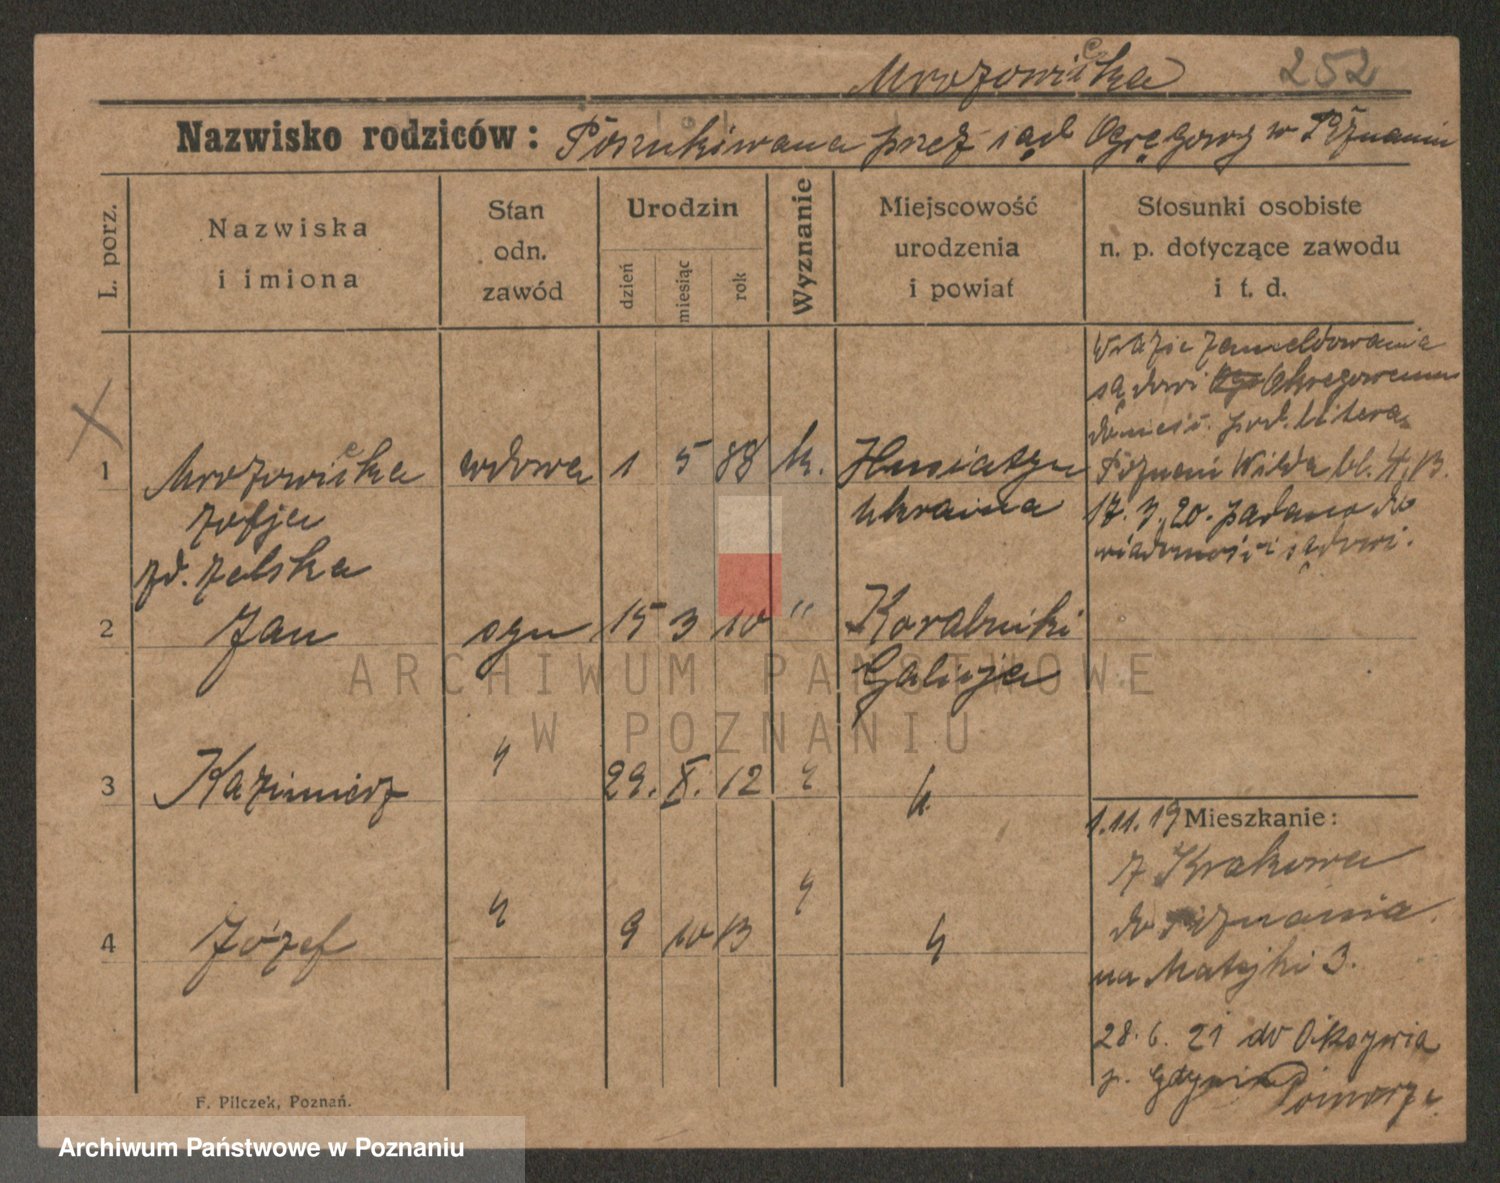 Mrozowicka 252
Nazwisko rodziców: Poszukiwana przez sąd Ogręgowy w Poznaniu
L. porz.
Nazwiska
i imiona
Stan
odn.
zawód
Urodzin
dzień
miesiąc
rok
Wyznanie
Miejscowość
urodzenia
i powiat
Stosunki osobiste
n. p. dotyczące zawodu
i t. d.
W razie zameldowania
sądowi Okręgowemu
donieść. pod. literą
Poznań Wilda bl. 4, B.
17. 3. 20. podano do
wiadomości sądowi.
1 Mrozowicka wdowa 1 5 88 k. Husiatyn
Zofja Ukraina
zd. Zelska
2 Jan syn 15 3 10 "
Galicja
3 Kazimierz " 29. X. 12 " "
4 Józef " 9 10 13 " "
1.11.19 Mieszkanie:
z Krakowa
do Poznania
na Matejki 3.
28. 6. 21 do Oksywia
p. Gdynia Pomorze
F. Pilczek, Poznań.
ARCHIWUM PAŃSTWOWE
W POZNANIU
Archiwum Państwowe w Poznaniu